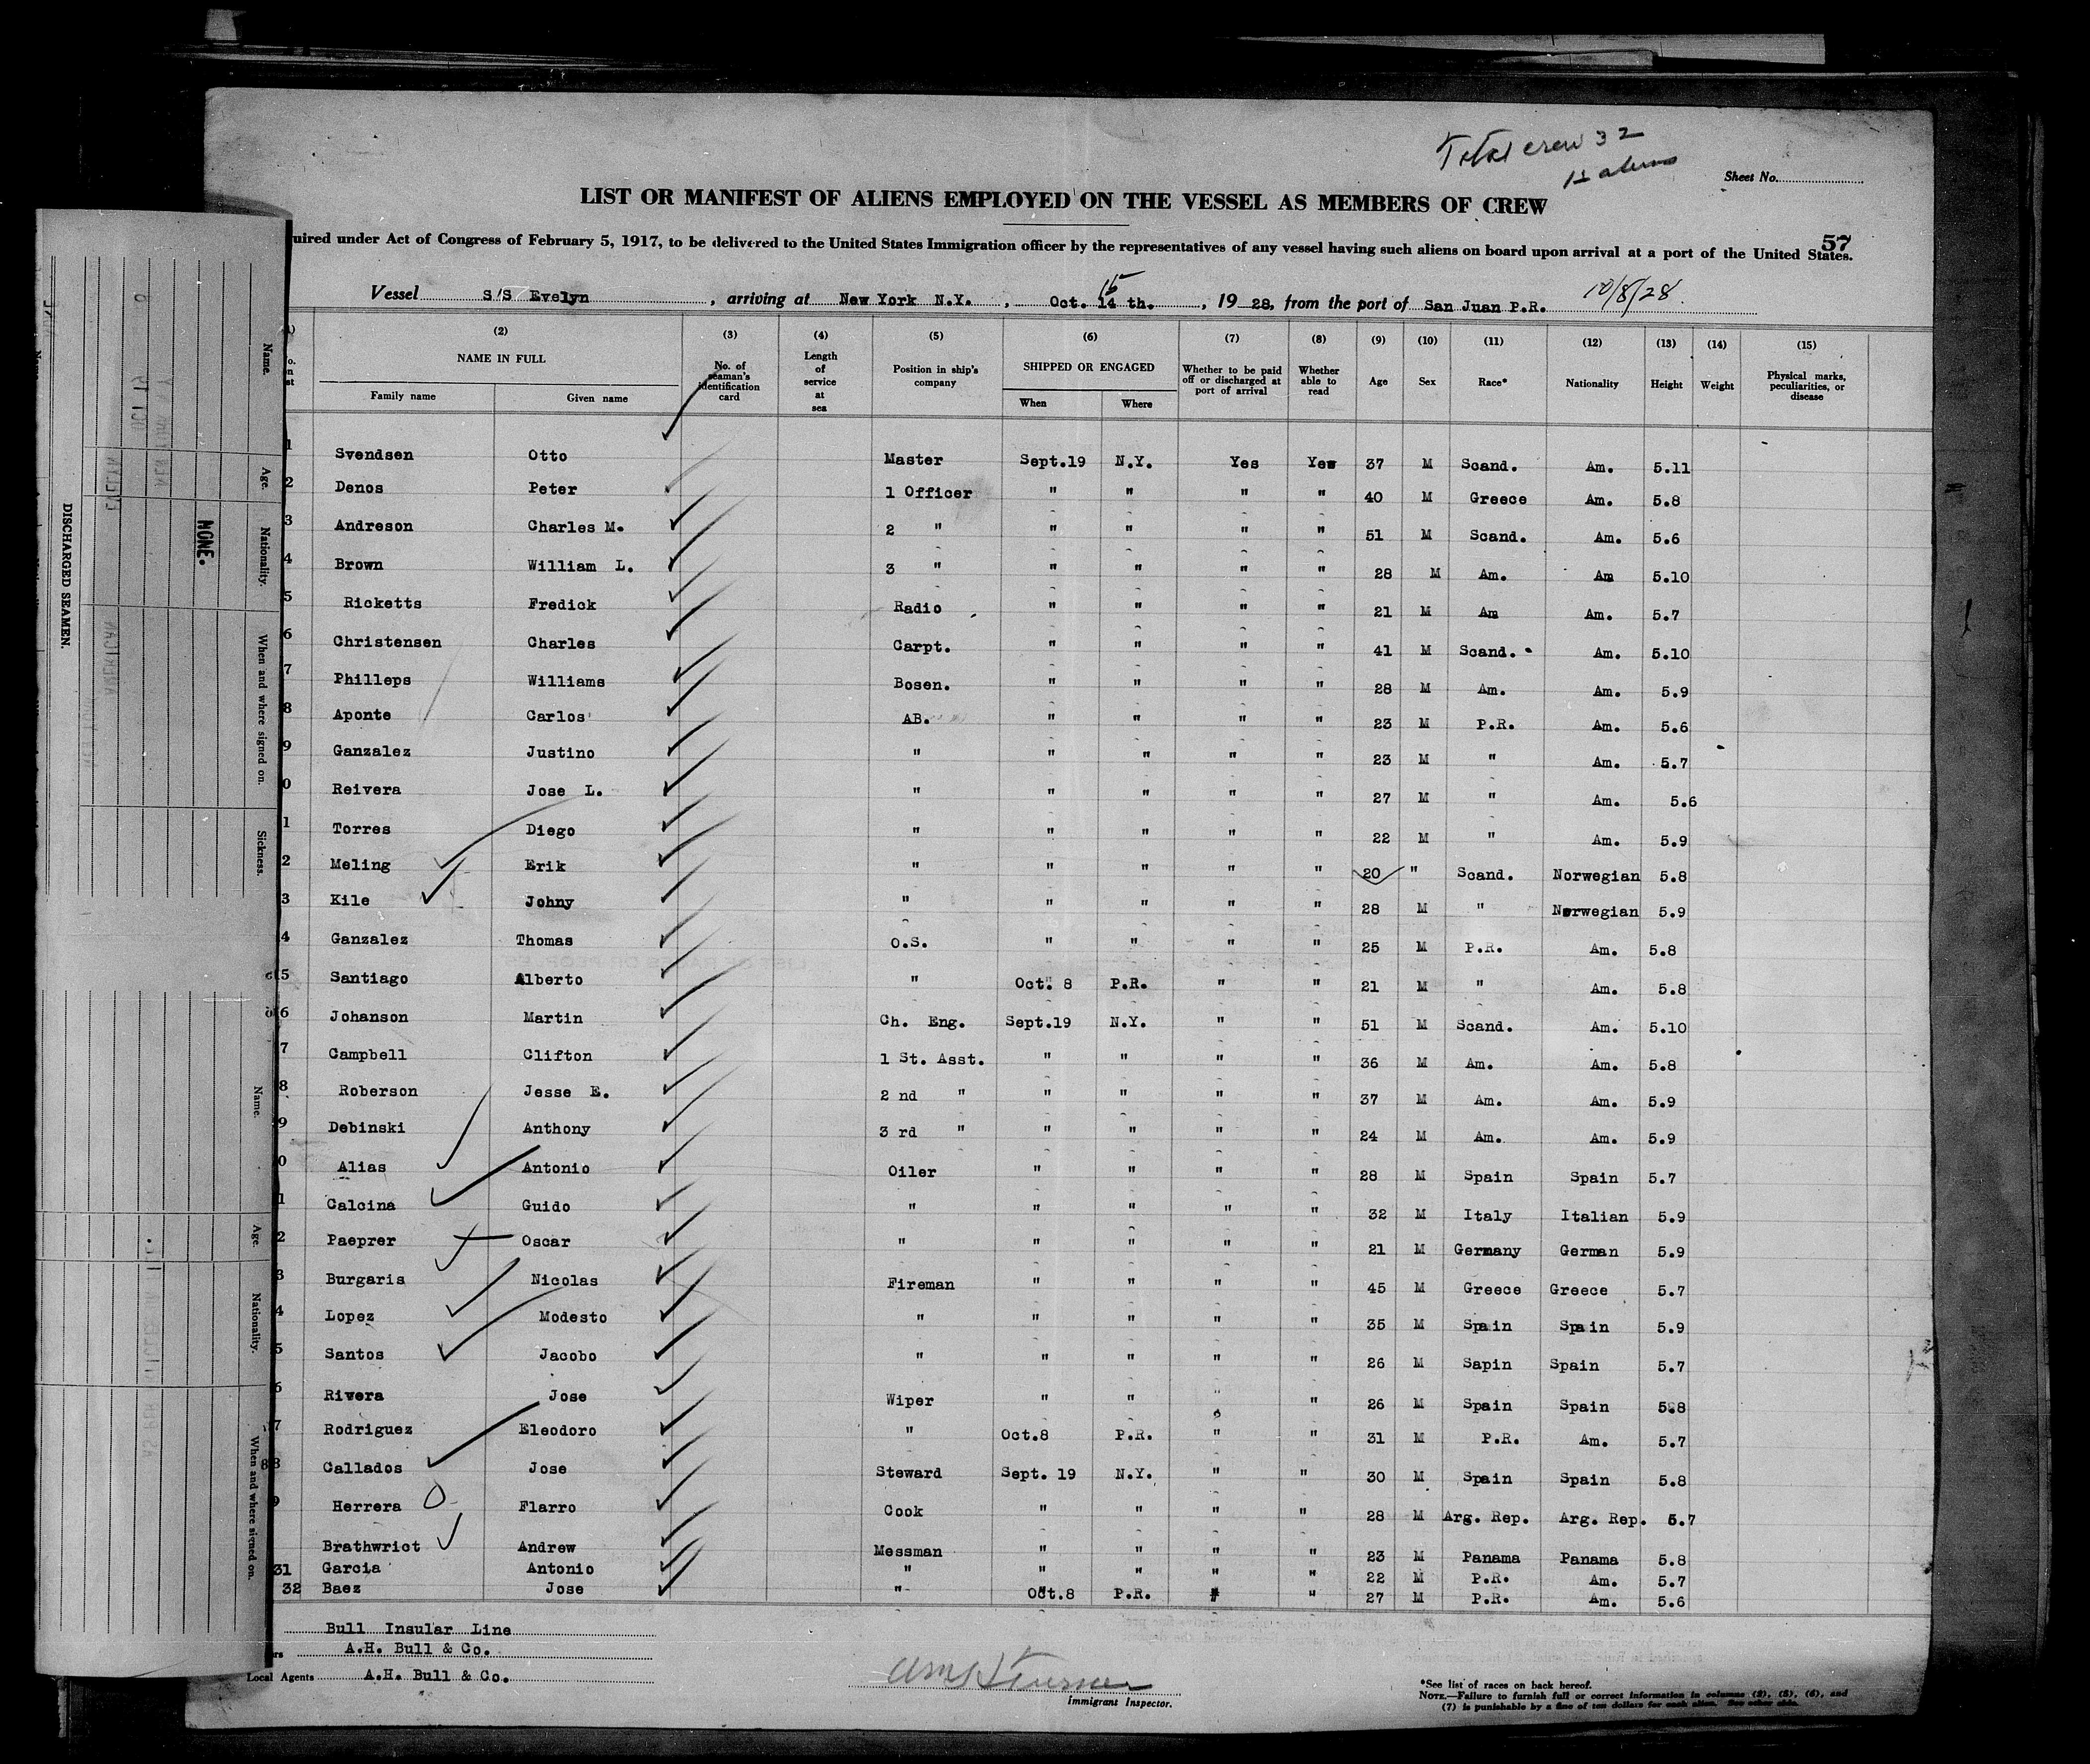 Total crew 32
Sheet No.
LIST OR MANIFEST OF ALIENS EMPLOYED ON THE VESSEL AS MEMBERS OF CREW
57
uired under Act of Congress of February 5, 1917, to be delivered to the United States Immigration officer by the representatives of any vessel having such aliens on board upon arrival at a port of the United States.
Vessel S/S Evelyn, arriving at New York N.Y., Oct. 14 th. 15, 19 28, from the port of San Juan P.R. 10/8/28.
(2) (3) (4) (5) (6) (7) (8) (9) (10) (11) (12) (13) (14) (15)
NAME IN FULL Family name Given name No. of seaman's identification card Length of service at sea Position in ship's company SHIPPED OR ENGAGED When Where Whether to be paid off or discharged at port of arrival Whether able to read Age Sex Race* Nationality Height Weight Physical marks, peculiarities, or disease
1 Svendsen Otto Master Sept.19 N.Y. Yes Yes 37 M Scand. Am. 5.11
2 Denos Peter 1 Officer " " " " 40 M Greece Am. 5.8
3 Andreson Charles M. 2 " " " " " 51 M Scand. Am. 5.6
4 Brown William L. 3 " " " " " 28 M Am. Am 5.10
5 Ricketts Fredick Radio " " " " 21 M Am Am. 5.7
6 Christensen Charles Carpt. " " " " 41 M Scand. Am. 5.10
7 Philleps Williams Bosen. " " " " 28 M Am. Am. 5.9
8 Aponte Carlos AB. " " " " 23 M P.R. Am. 5.6
9 Ganzalez Justino " " " " " 23 M " Am. 5.7
0 Reivera Jose L. " " " " " 27 M " Am. 5.6
1 Torres Diego " " " " " 22 M " Am. 5.9
2 Meling Erik " " " " " 20 " Scand. Norwegian 5.8
3 Kile Johny " " " " " 28 M " Norwegian 5.9
4 Ganzalez Thomas O.S. " " " " 25 M P.R. Am. 5.8
15 Santiago Alberto " Oct. 8 P.R. " " 21 M " Am. 5.8
6 Johanson Martin Ch. Eng. Sept.19 N.Y. " " 51 M Scand. Am. 5.10
7 Campbell Clifton 1 St. Asst. " " " " 36 M Am. Am. 5.8
8 Roberson Jesse E. 2 nd " " " " " 37 M Am. Am. 5.9
9 Debinski Anthony 3 rd " " " " " 24 M Am. Am. 5.9
0 Alias Antonio Oiler " " " " 28 M Spain Spain 5.7
1 Calcina Guido " " " " " 32 M Italy Italian 5.9
2 Paeprer Oscar " " " " " 21 M Germany German 5.9
3 Burgaris Nicolas Fireman " " " " 45 M Greece Greece 5.7
4 Lopez Modesto " " " " " 35 M Spain Spain 5.9
5 Santos Jacobo " " " " " 26 M Sapin Spain 5.7
6 Rivera Jose Wiper " " " " 26 M Spain Spain 5.8
7 Rodriguez Eleodoro " Oct.8 P.R. " " 31 M P.R. Am. 5.7
8 Callados Jose Steward Sept. 19 N.Y. " " 30 M Spain Spain 5.8
9 Herrera Flarro Cook " " " " 28 M Arg. Rep. Arg. Rep. 5.7
Brathwrict Andrew Messman " " " " 23 M Panama Panama 5.8
31 Garcia Antonio " " " " " 22 M P.R. Am. 5.7
32 Baez Jose " Oct.8 P.R. " " 27 M P.R. Am. 5.6
Bull Insular Line
rs A.H. Bull & Co.
Local Agents A.H. Bull & Co.
Immigrant Inspector.
*See list of races on back hereof.
NOTE.—Failure to furnish full or correct information in columns (2), (5), (6), and
(7) is punishable by a fine of ten dollars for each alien. See other side.
DISCHARGED SEAMEN.
NONE.
Name.
Age.
Nationality.
When and where signed on.
Sickness.
Name.
Age.
Nationality.
When and where signed on.